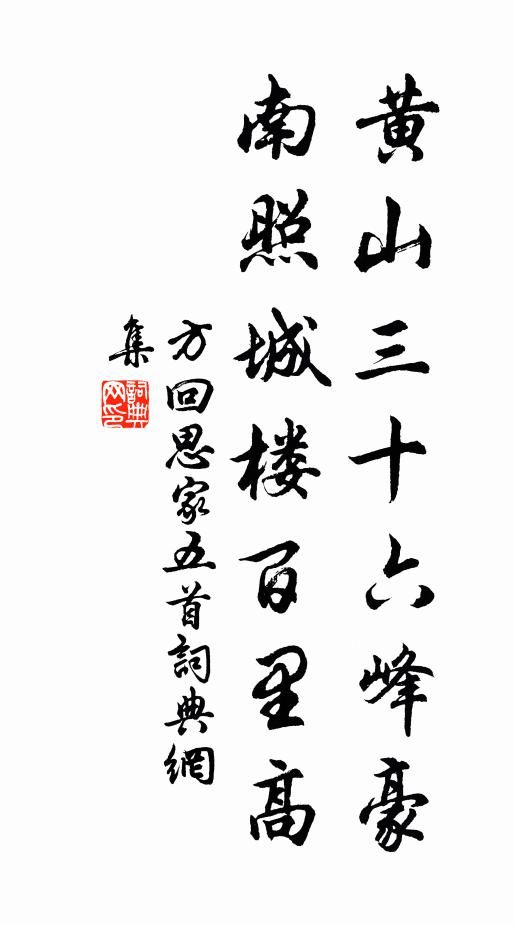 黄山三十六峰豪
南照城楼百里高
方回思家五首詞典網
集
詞典網印